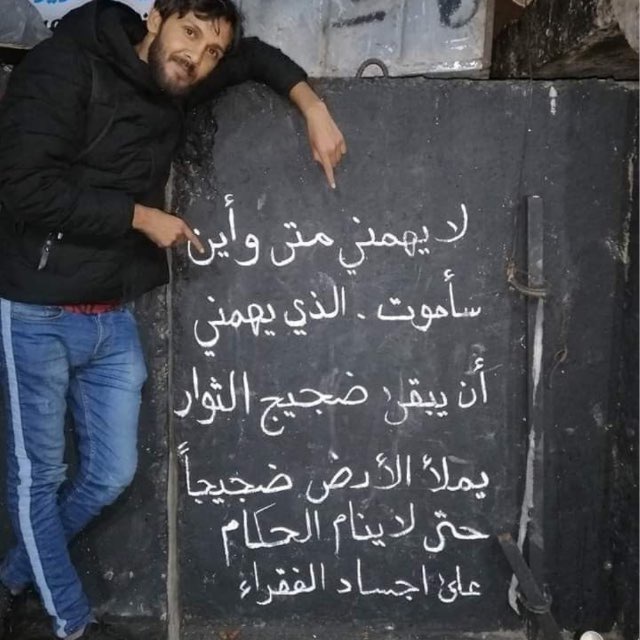 لا يهمني متى وأين
سأموت . الذي يهمني
أن يبقى ضجيج الثوار
يملأ الأرض ضجيجاً
حتى لا ينام الحكام
على اجساد الفقراء